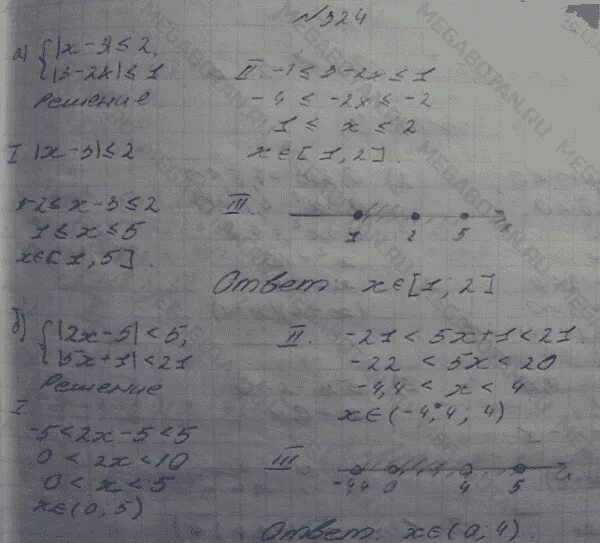 №324
а) { |x-3| ≤ 2,
|3-2x| ≤ 1
Решение
I |x-3| ≤ 2
-2 ≤ x-3 ≤ 2
1 ≤ x ≤ 5
x∈[1, 5].
II -1 ≤ 3-2x ≤ 1
-4 ≤ -2x ≤ -2
1 ≤ x ≤ 2
x∈[1, 2].
III.
1 2 5 x
Ответ: x∈[1, 2]
б) { |2x-5| < 5,
|5x+1| < 21
Решение
I
-5 < 2x-5 < 5
0 < 2x < 10
0 < x < 5
x∈(0, 5)
II. -21 < 5x+1 < 21
-22 < 5x < 20
-4,4 < x < 4
x∈(-4,4; 4)
III.
-4,4 0 4 5 x
Ответ: x∈(0; 4).
MEGABOTAN.RU